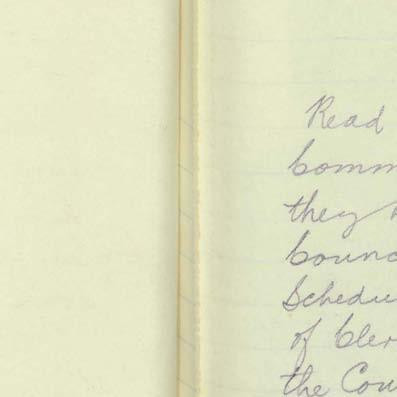 Read
Comm
they
Counc
Schedu
of Cler
the Cou